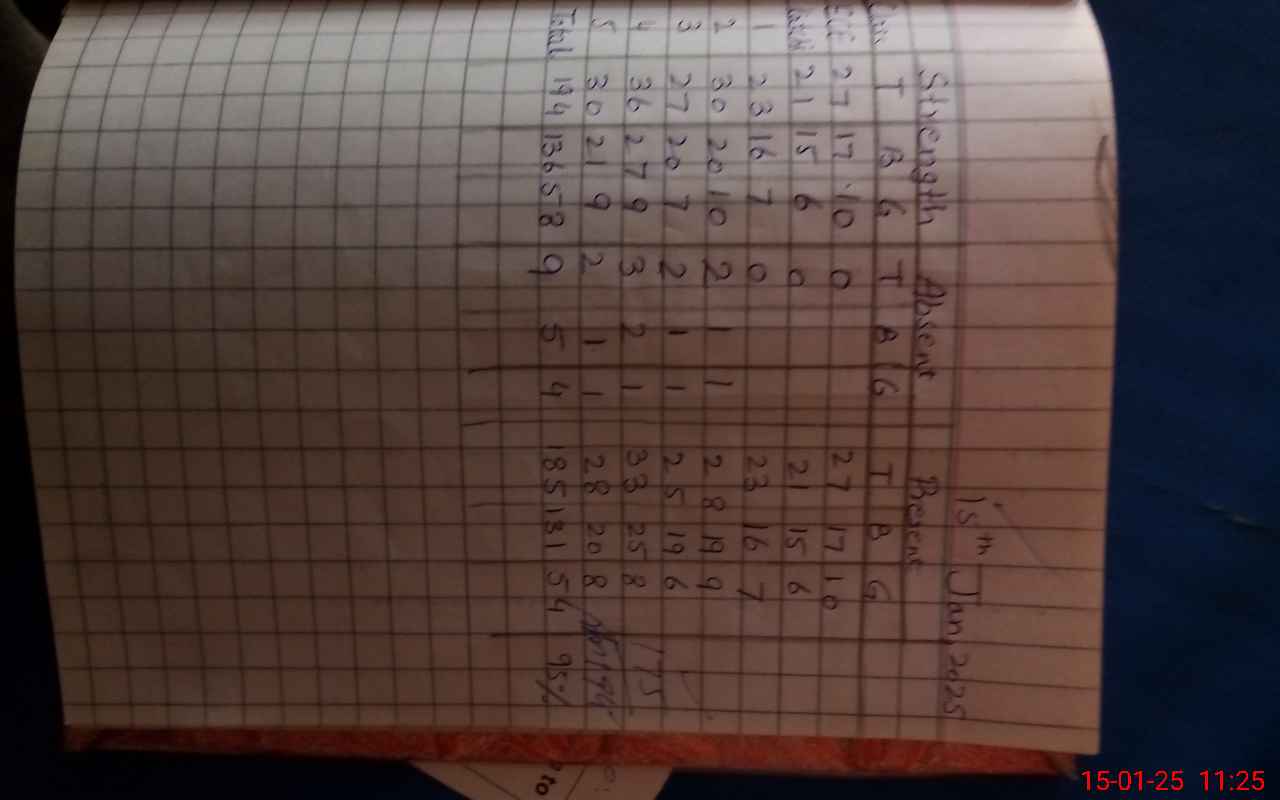 15th Jan, 2025
Strength Absent Present
Class T B G T B G T B G
ECE 27 17 10 0 27 17 10
Katchi 21 15 6 0 21 15 6
1 23 16 7 0 23 16 7
2 30 20 10 2 1 1 28 19 9
3 27 20 7 2 1 1 25 19 6
4 36 27 9 3 2 1 33 25 8
175
5 30 21 9 2 1 1 28 20 8
Total 194 136 58 9 5 4 185 131 54 95%
to
15-01-25 11:25